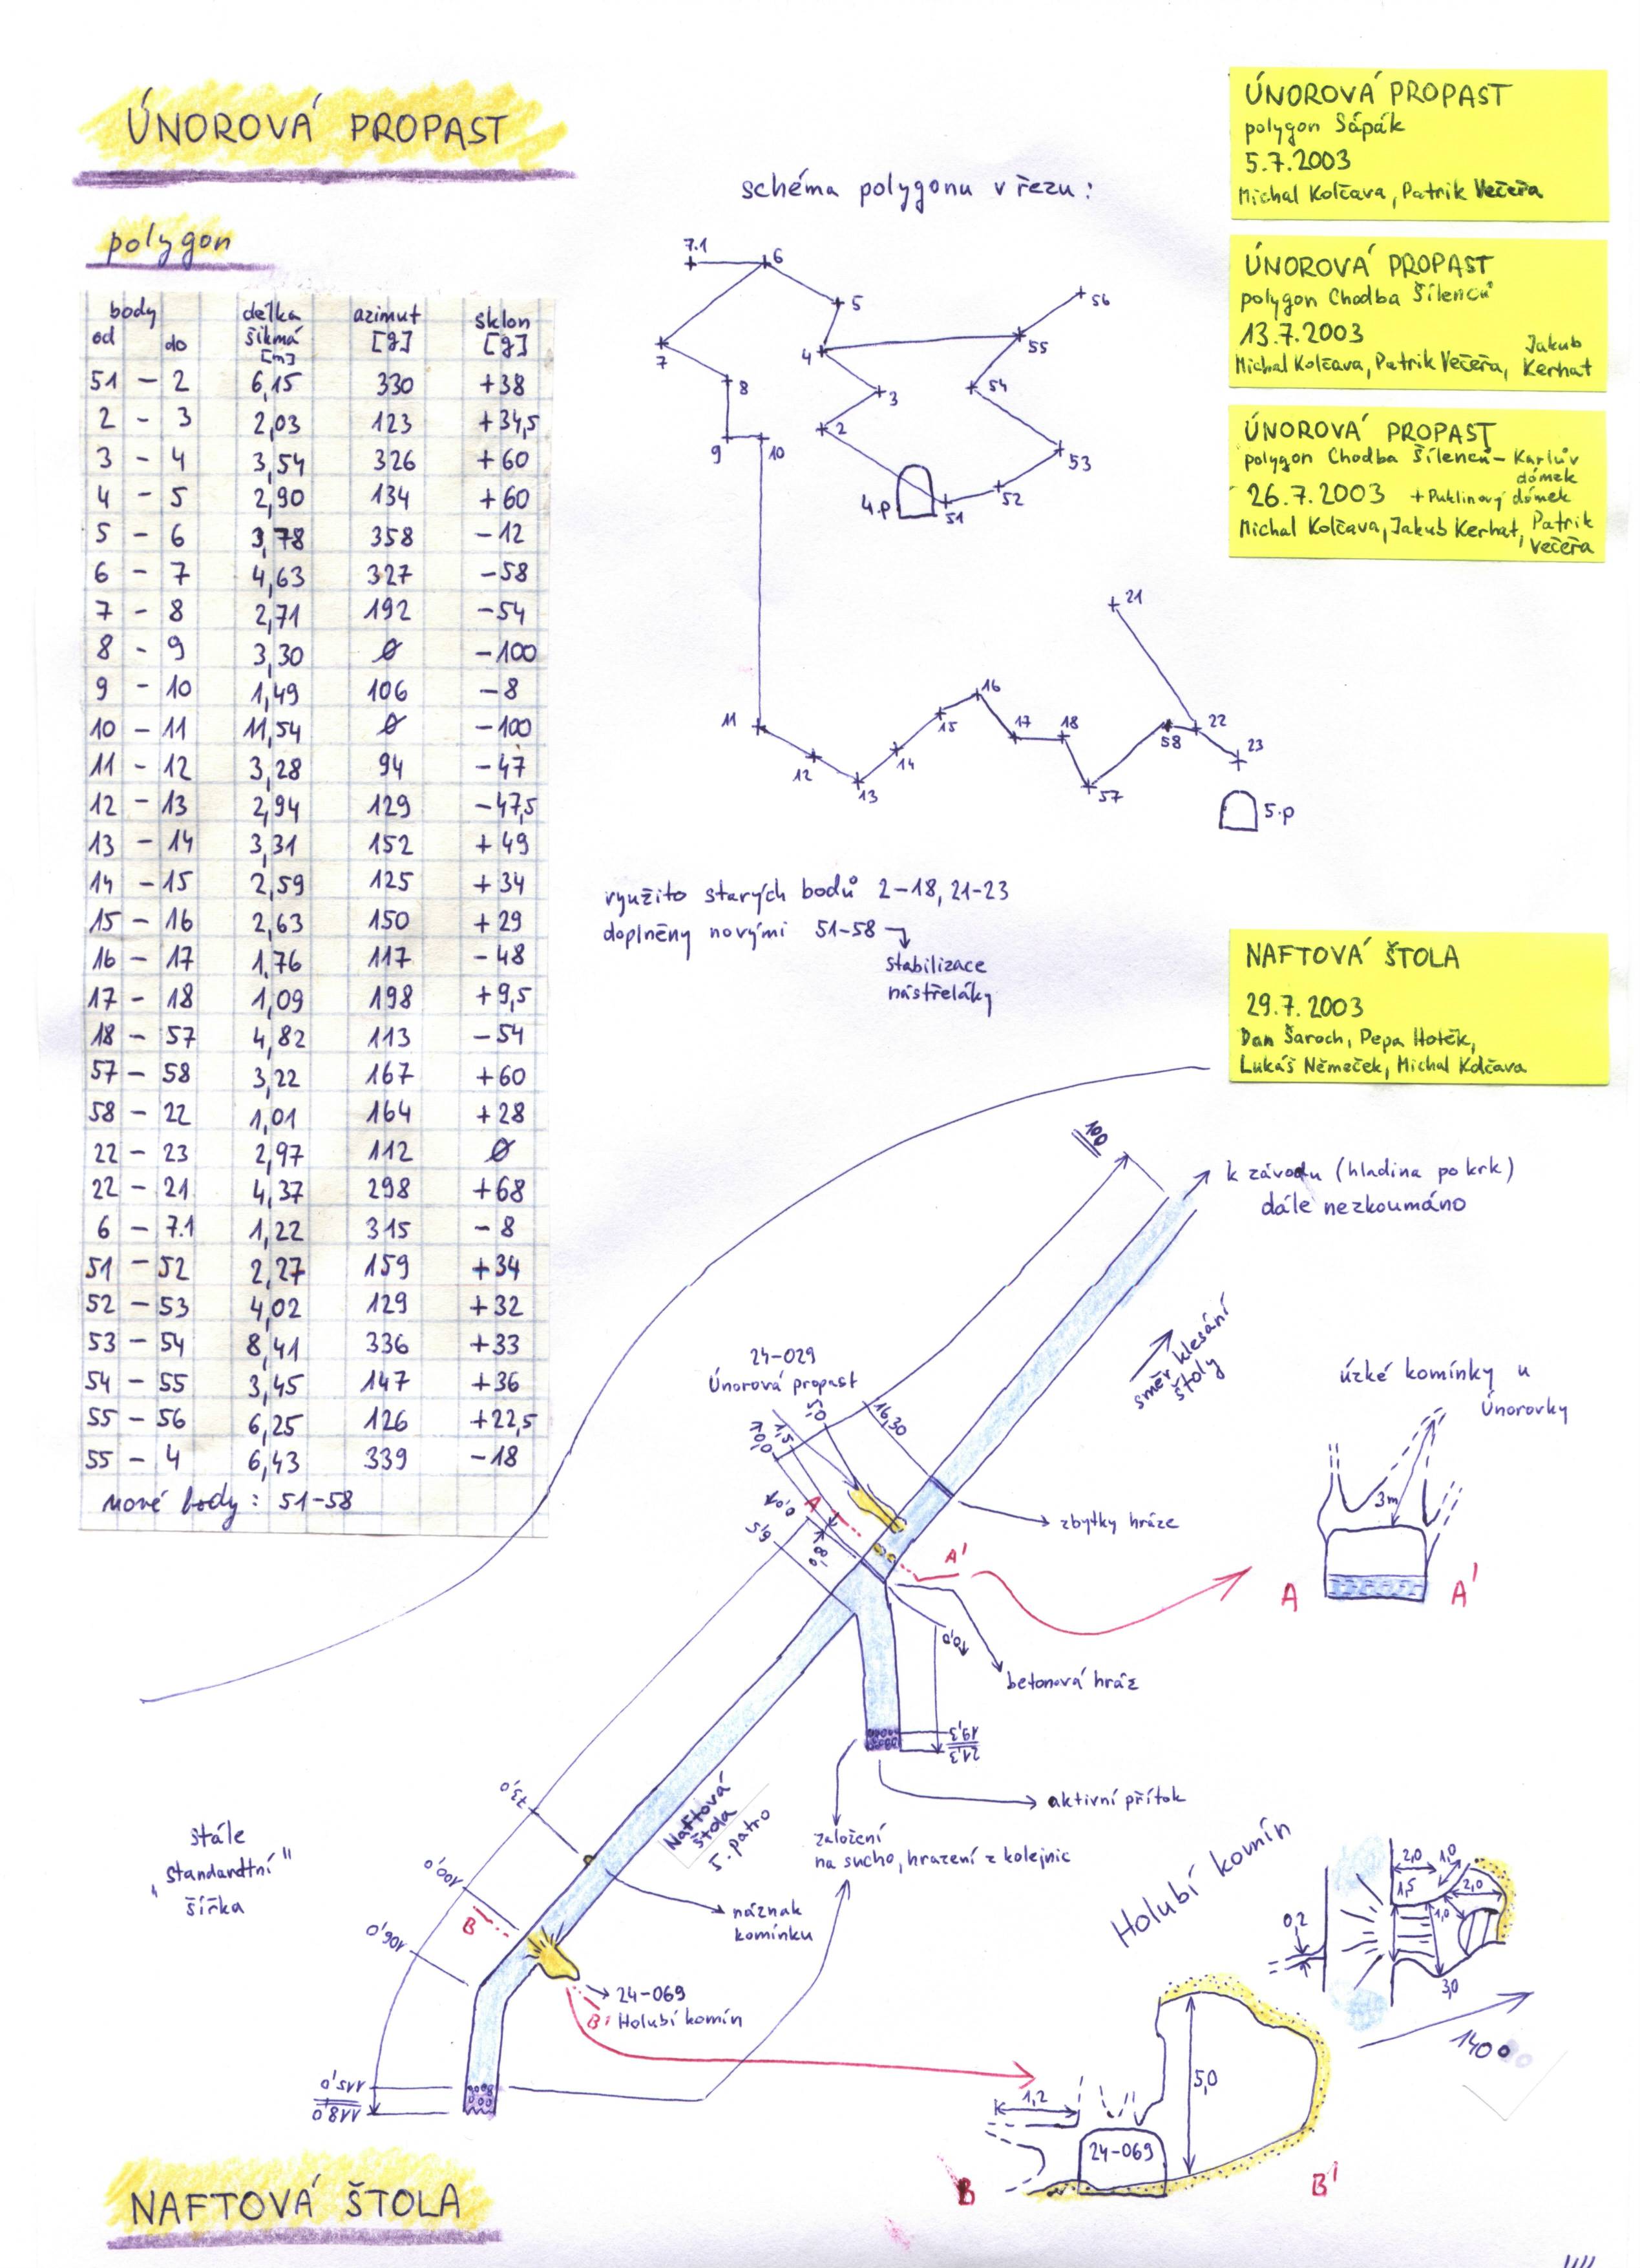 ÚNOROVÁ PROPAST
polygon
body délka azimut sklon
od do šikmá [g] [g]
[m]
51 - 2 6,15 330 +38
2 - 3 2,03 123 +34,5
3 - 4 3,54 326 +60
4 - 5 2,90 134 +60
5 - 6 3,78 358 -12
6 - 7 4,63 327 -58
7 - 8 2,71 192 -54
8 - 9 3,30 ∅ -100
9 - 10 1,49 106 -8
10 - 11 11,54 ∅ -100
11 - 12 3,28 94 -47
12 - 13 2,94 129 -47,5
13 - 14 3,31 152 +49
14 - 15 2,59 125 +34
15 - 16 2,63 150 +29
16 - 17 1,76 117 -48
17 - 18 1,09 198 +9,5
18 - 57 4,82 113 -54
57 - 58 3,22 167 +60
58 - 22 1,01 164 +28
22 - 23 2,97 112 ∅
22 - 21 4,37 298 +68
6 - 7.1 1,22 315 -8
51 - 52 2,27 159 +34
52 - 53 4,02 129 +32
53 - 54 8,41 336 +33
54 - 55 3,45 147 +36
55 - 56 6,25 126 +22,5
55 - 4 6,43 339 -18
nové body: 51-58
schéma polygonu v řezu:
7.1
6
5
56
4
55
7
8
3
54
2
9
10
53
4.p
51
52
21
11
16
15
17
18
58
22
23
12
14
13
57
5.p
využito starých bodů 2-18, 21-23
doplněny novými 51-58
stabilizace
nástřeláky
ÚNOROVÁ PROPAST
polygon Sápák
5.7.2003
Michal Kolčava, Patrik Večeřa
ÚNOROVÁ PROPAST
polygon Chodba Šílenců
13.7.2003
Jakub
Michal Kolčava, Patrik Večeřa, Kerhat
ÚNOROVÁ PROPAST
polygon Chodba Šílenců - Karlův
dómek
26.7.2003 + Puklinový dómek
Michal Kolčava, Jakub Kerhat, Patrik
Večeřa
NAFTOVÁ ŠTOLA
29.7.2003
Dan Šaroch, Pepa Hotěk,
Lukáš Němeček, Michal Kolčava
100
k závodu (hladina po krk)
dále nezkoumáno
směr klesání
štoly
24-029
Únorová propast
5,0
16,30
1,5
0,0
6,5
0,8
A
A'
zbytky hráze
úzké komínky u
Únorovky
3m
A
A'
0,0
betonová hráz
19,3
21,3
aktivní přítok
založení
na sucho, hrazení z kolejnic
Naftová
štola
5. patro
73,0
100,0
106,0
stále
"standardtní"
šířka
náznak
komínku
B
24-069
B' Holubí komín
115,0
118,0
Holubí komín
2,0
1,0
1,5
2,0
1,0
0,2
3,0
140
5,0
1,2
24-069
B
B'
NAFTOVÁ ŠTOLA